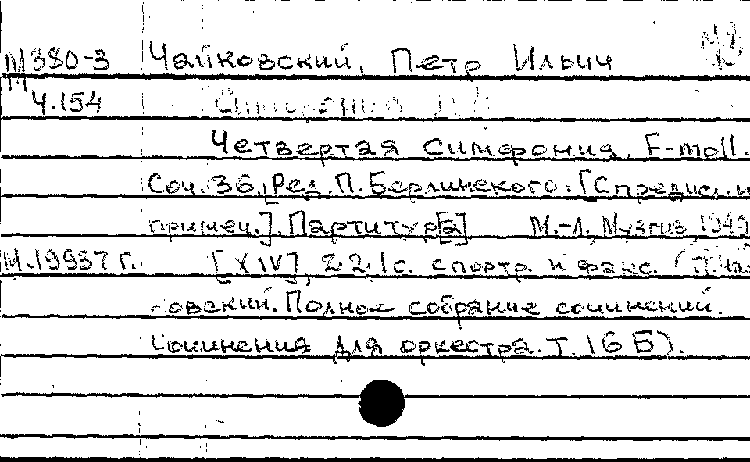 М380-3 Чайковский, Петр Ильич
Ч.154
Четвертая симфония. F-moll.
Соч. 36. Ред. П. Берлинского. [С предисл. и
примеч.]. Партитур[а] М.-Л. Музгиз, 1949
М.19937г. [XIV], 221с. с портр. и факс. (П. Чай
ковский. Полное собрание сочинений.
Сочинения для оркестра. Т. 16 Б).